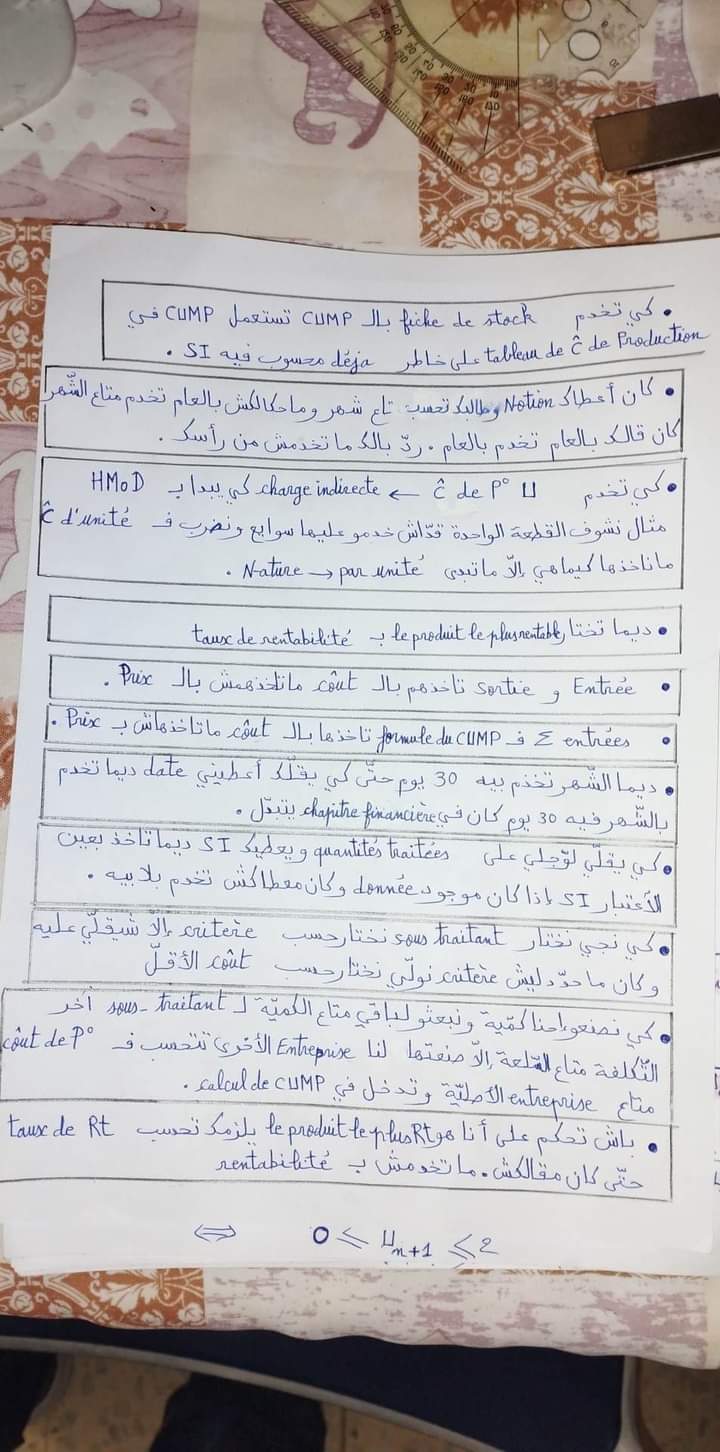 • كي تخدم fiche de stock بالـ CUMP تستعمل CUMP في
tableau de ĉ de Production على خاطر déja محسوب فيه SI .
• كان أعطاك Notion وطالبك تحسب تاع شهر وما حكالكش بالعام تخدم متاع الشّهر
كان قالك بالعام تخدم بالعام . ردّ بالك ما تخدمش من رأسك .
• كي تخدم ĉ de P° U ← charge indirecte كي يبدا بـ HMOD
مثال نشوف القطعة الواحدة قدّاش خدمو عليها سوايع ونضرب فـ ĉ d'unité
ماناخذها كيماهي إلاّ ما تبدى Nature → par unité .
• ديما تختار le produit le plus rentable بـ taux de rentabilité
• Entrée و sortie تاخذهم بالـ coût ما تاخذهمش بالـ Prix .
• Σ entrées فـ formule du CUMP تاخذها بالـ coût ما تاخذهاش بـ Prix .
• ديما الشّهر تخذم بيه 30 يوم حتّى كي يقلّك أعطيني date ديما تخدم
بالشّهر فيه 30 يوم كان في chapitre financière يتبدّل .
• كي يقلّي لوّجلي على quantités traitées ويعطيك SI ديما تاخذ بعين
الأعتبار SI إذا كان موجود donnée وكان معطاكش تخدم بلا بيه .
• كي نجي نختار sous traitant نختار حسب critère إلاّ شيقلّي عليه
وكان ما حدّدليش critère نولّي نختار حسب coût الأقلّ
• كي نصنعو احنا كمّية ونبعثو لباقي متاع الكميّة لـ sous-traitant آخر
التّكلفة متاع السّلعة إلاّ صنعتها لنا Entreprise الأخرى تتحسب فـ coût de P°
متاع entreprise الأصليّة وتدخل في calcul de CUMP .
• باش تحكم على أنا هو le produit le plus Rt يلزمك تحسب taux de Rt
حتّى كان مقالكش . ما تخدمش بـ rentabilité
⇔ 0 ≤ U n+1 ≤ 2